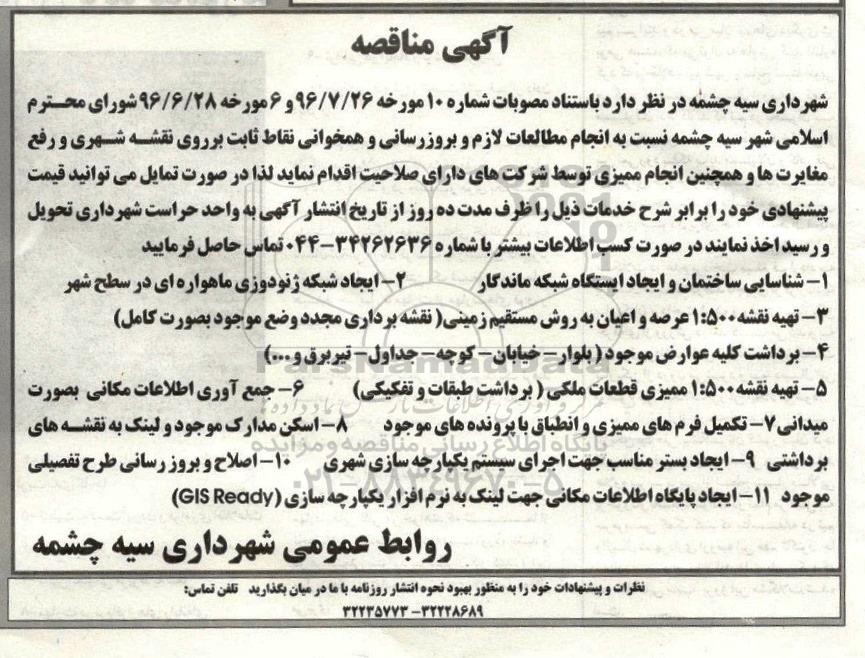 آگهی مناقصه
شهرداری سیه چشمه در نظر دارد باستناد مصوبات شماره ۱۰ مورخه ۹۶/۷/۲۶ و ۶ مورخه ۹۶/۶/۲۸ شورای محترم
اسلامی شهر سیه چشمه نسبت به انجام مطالعات لازم و بروزرسانی و همخوانی نقاط ثابت برروی نقشه شهری و رفع
مغایرت ها و همچنین انجام ممیزی توسط شرکت های دارای صلاحیت اقدام نماید لذا در صورت تمایل می توانید قیمت
پیشنهادی خود را برابر شرح خدمات ذیل را ظرف مدت ده روز از تاریخ انتشار آگهی به واحد حراست شهرداری تحویل
و رسید اخذ نمایند در صورت کسب اطلاعات بیشتر با شماره ۳۴۲۶۲۶۳۶-۰۴۴ تماس حاصل فرمایید
۱- شناسایی ساختمان و ایجاد ایستگاه شبکه ماندگار ۲- ایجاد شبکه ژئودوزی ماهواره ای در سطح شهر
۳- تهیه نقشه ۱:۵۰۰ عرصه و اعیان به روش مستقیم زمینی( نقشه برداری مجدد وضع موجود بصورت کامل)
۴- برداشت کلیه عوارض موجود ( بلوار- خیابان- کوچه- جداول- تیربرق و...)
۵- تهیه نقشه ۱:۵۰۰ ممیزی قطعات ملکی ( برداشت طبقات و تفکیکی) ۶- جمع آوری اطلاعات مکانی بصورت
میدانی ۷- تکمیل فرم های ممیزی و انطباق با پرونده های موجود ۸- اسکن مدارک موجود و لینک به نقشه های
برداشتی ۹- ایجاد بستر مناسب جهت اجرای سیستم یکپارچه سازی شهری ۱۰- اصلاح و بروز رسانی طرح تفصیلی
موجود ۱۱- ایجاد پایگاه اطلاعات مکانی جهت لینک به نرم افزار یکپارچه سازی (GIS Ready)
روابط عمومی شهرداری سیه چشمه
نظرات و پیشنهادات خود را به منظور بهبود نحوه انتشار روزنامه با ما در میان بگذارید تلفن تماس:
۳۲۲۳۵۷۷۳-۳۲۲۲۸۶۸۹
ParsNamadData
پایگاه اطلاع رسانی مناقصه و مزایده
۰۲۱-۸۸۳۴۹۶۷۰-۵